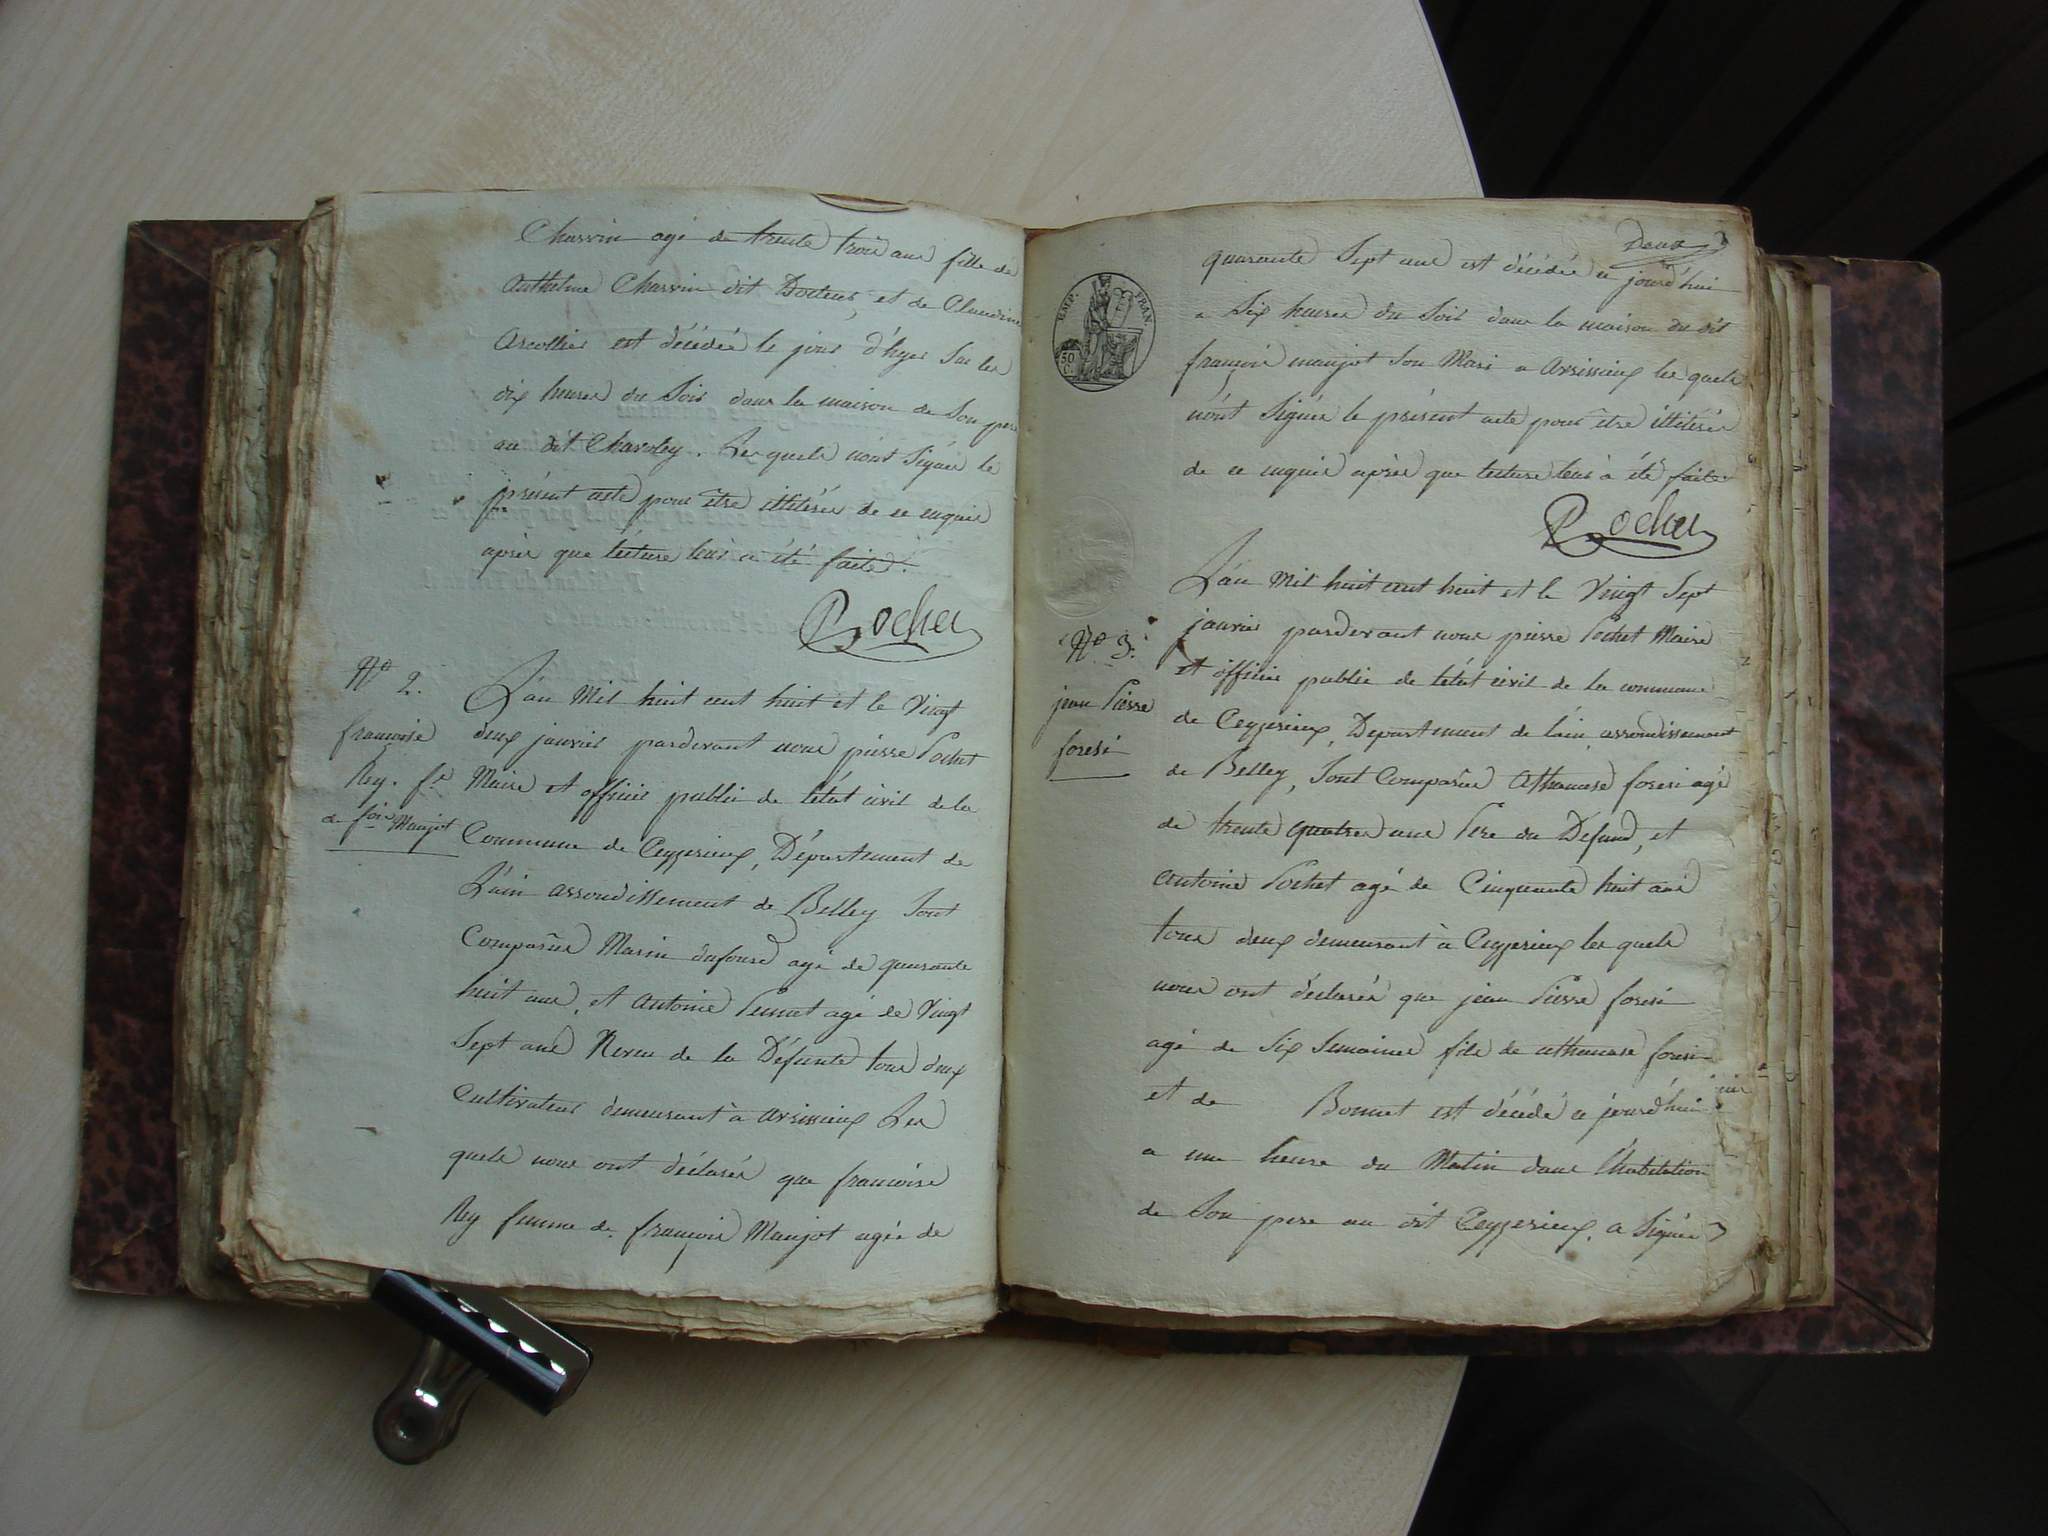 Chavvin agé de trente trois ans fille de
Anthelme Chavvin dit Docteur, et de Claudine
est décédée le jour d'hyer Sur les
dix heures du Soir dans la maison de Son pere
au dit Les quels n'ont Signés le
présent acte pour être illitérés de ce enquis
après que lecture leur a été faite.
Pochet
N° 2.
françoise
Rey. fe
de fois Maujot
L'an Mil huit cent huit et le Vingt
deux janvier pardevant nous pierre Pochet
Maire et officier public de l'état civil de la
Commune de Ceyzerieux, Département de
L'ain arrondissement de Belley Sont
Comparus Marin dufour agé de quarante
huit ans, et Antoine agé de Vingt
Sept ans Neveu de la Défunte tous deux
Cultivateurs demeurant à avrissieux Les
quels nous ont déclarés que francoise
Rey femme de françois Maujot agée de
Deux
quarante Sept ans est décédée ce jourd'hui
a Six heures du Soir dans la maison du dit
françois maujot Son Mari a avrissieux les quels
n'ont Signés le présent acte pour être illitérés
de ce enquis après que lecture leur à été faite
Pochet
EMP. FRAN
50
C.
N° 3.
jean Pierre
foresi
L'an Mil huit cent huit et le Vingt Sept
janvier pardevant nous pierre Pochet Maire
et officier public de l'état civil de la commune
de Ceyzerieux, Département de l'ain, arrondissement
de Belley, Sont Comparus Athanase foresi agé
de trente quatre ans Pere du Defund, et
Antoine Pochet agé de Cinquante huit ans
tous deux demeurant à Ceyzerieux les quels
nous ont déclarés que jean Pierre foresi
agé de Six Semaines fils de athanase foresi
et de Bonnet est décédé ce jourd'hui
a une heure du Matin dans l'habitation
de Son pere au dit Ceyzerieux. a Signé